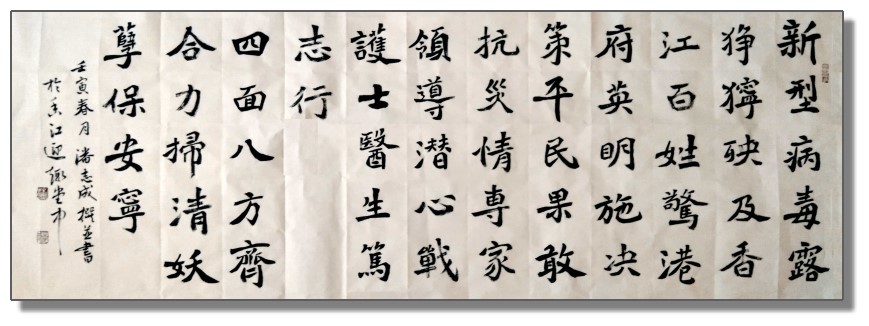 新型病毒露
狰獰殃及香
江百姓驚港
府英明施决
策平民果敢
抗災情専家
領導潜心戰
護士醫生篤
志行
四面八方齊
合力掃清妖
孽保安寧
壬寅春月潘志成撰並書
於香江迎